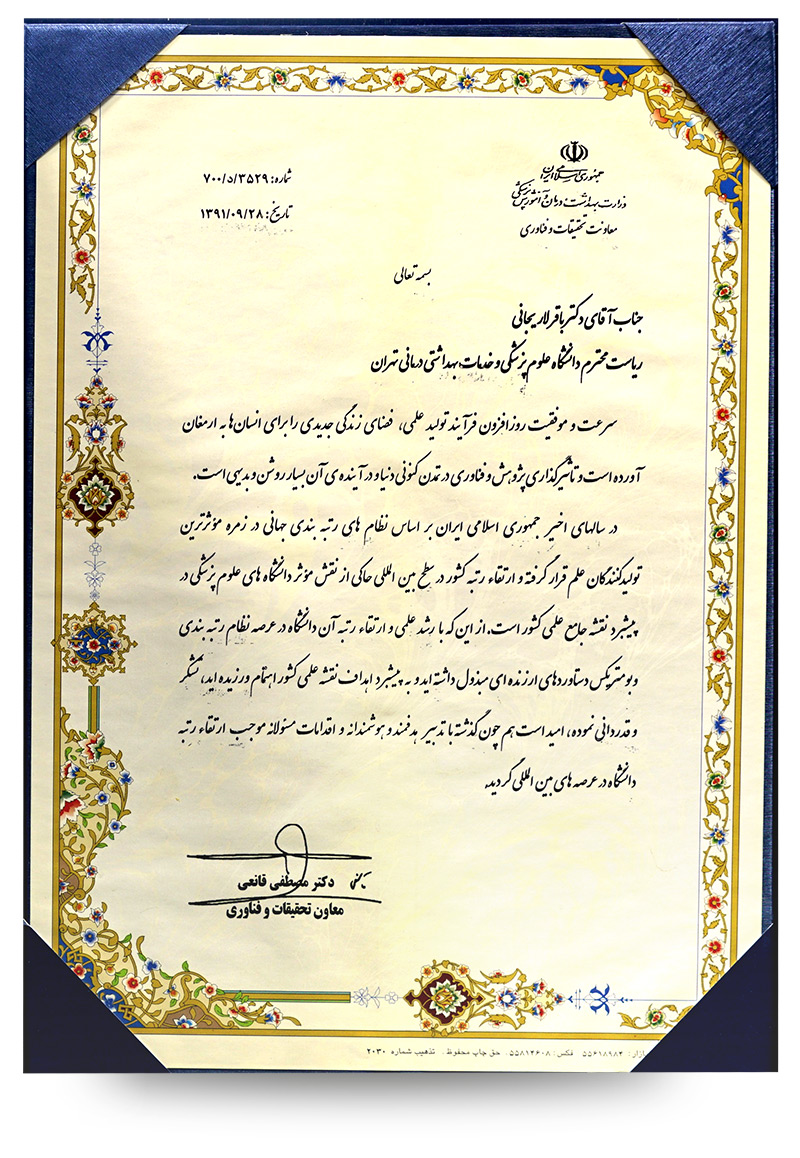 جمهوری اسلامی ایران
وزارت بهداشت، درمان و آموزش پزشکی
معاونت تحقیقات و فناوری
شماره: ۷۰۰/د/۳۵۲۹
تاریخ: ۱۳۹۱/۰۹/۲۸
بسمه تعالی
جناب آقای دکتر باقر لاریجانی
ریاست محترم دانشگاه علوم پزشکی و خدمات بهداشتی درمانی تهران
سرعت و موفقیت روزافزون فرآیند تولید علمی، فضای زندگی جدیدی را برای انسان‌ها به ارمغان
آورده است و تأثیرگذاری پژوهش و فناوری در تمدن کنونی دنیا و در آینده ی آن بسیار روشن و بدیهی است.
در سالهای اخیر جمهوری اسلامی ایران بر اساس نظام های رتبه بندی جهانی در زمره مؤثرترین
تولیدکنندگان علم قرار گرفته و ارتقاء رتبه کشور در سطح بین المللی حاکی از نقش مؤثر دانشگاه های علوم پزشکی در
پیشبرد نقشه جامع علمی کشور است. از این که با رشد علمی و ارتقاء رتبه آن دانشگاه در عرصه نظام رتبه بندی
وبومتریکس دستاوردهای ارزنده ای مبذول داشته اید و به پیشبرد اهداف نقشه علمی کشور اهتمام ورزیده اید، تشکر
و قدردانی نموده، امید است هم چون گذشته با تدبیر هدفمند و هوشمندانه و اقدامات مسئولانه موجب ارتقاء رتبه
دانشگاه در عرصه های بین المللی گردید.
دکتر مصطفی قانعی
معاون تحقیقات و فناوری
بازار: ۵۵۶۱۸۹۸۲ فکس: ۵۵۸۱۴۶۰۸ ، حق چاپ محفوظ ، تذهیب شماره ۲۰۳۰